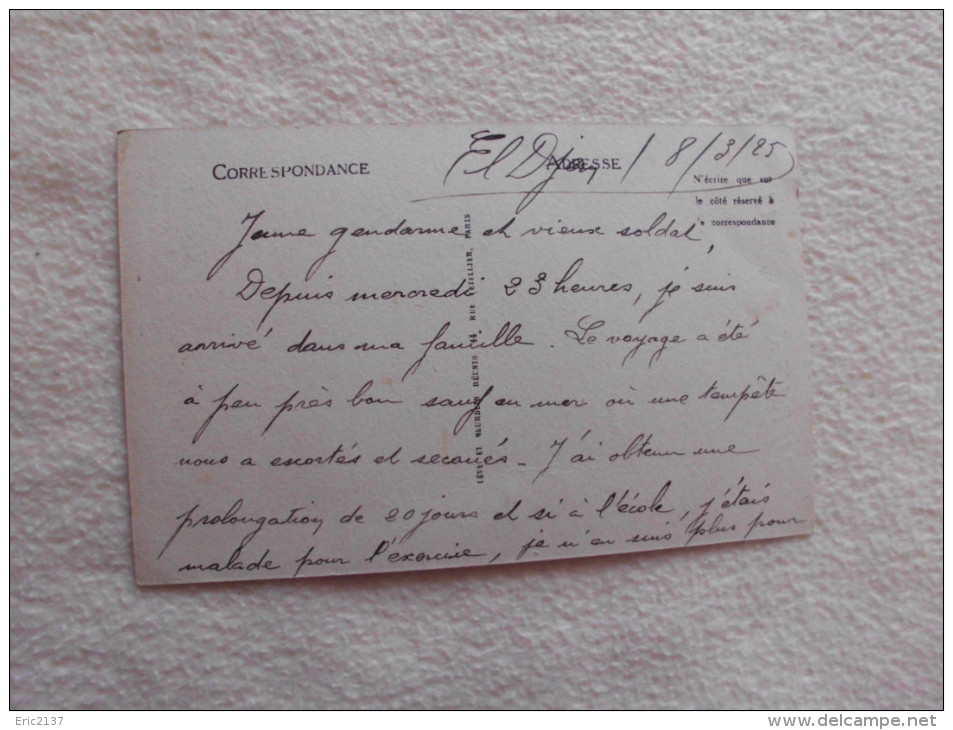 El Djem / 8/3/25
CORRESPONDANCE
ADRESSE
N'écrire que sur
le côté réservé à
la correspondance
Jeune gendarme et vieux soldat,
Depuis mercredi 23 heures, je suis
arrivé dans ma famille. Le voyage a été
à peu près bon sauf en mer où une tempête
nous a escortés et secoués. J'ai obtenu une
prolongation de 20 jours et si à l'école, j'étais
malade pour l'exercice, je n'en suis plus pour
LÉVY ET NEURDEIN RÉUNIS, 44 RUE LETELLIER, PARIS
Eric2137
www.delcampe.net